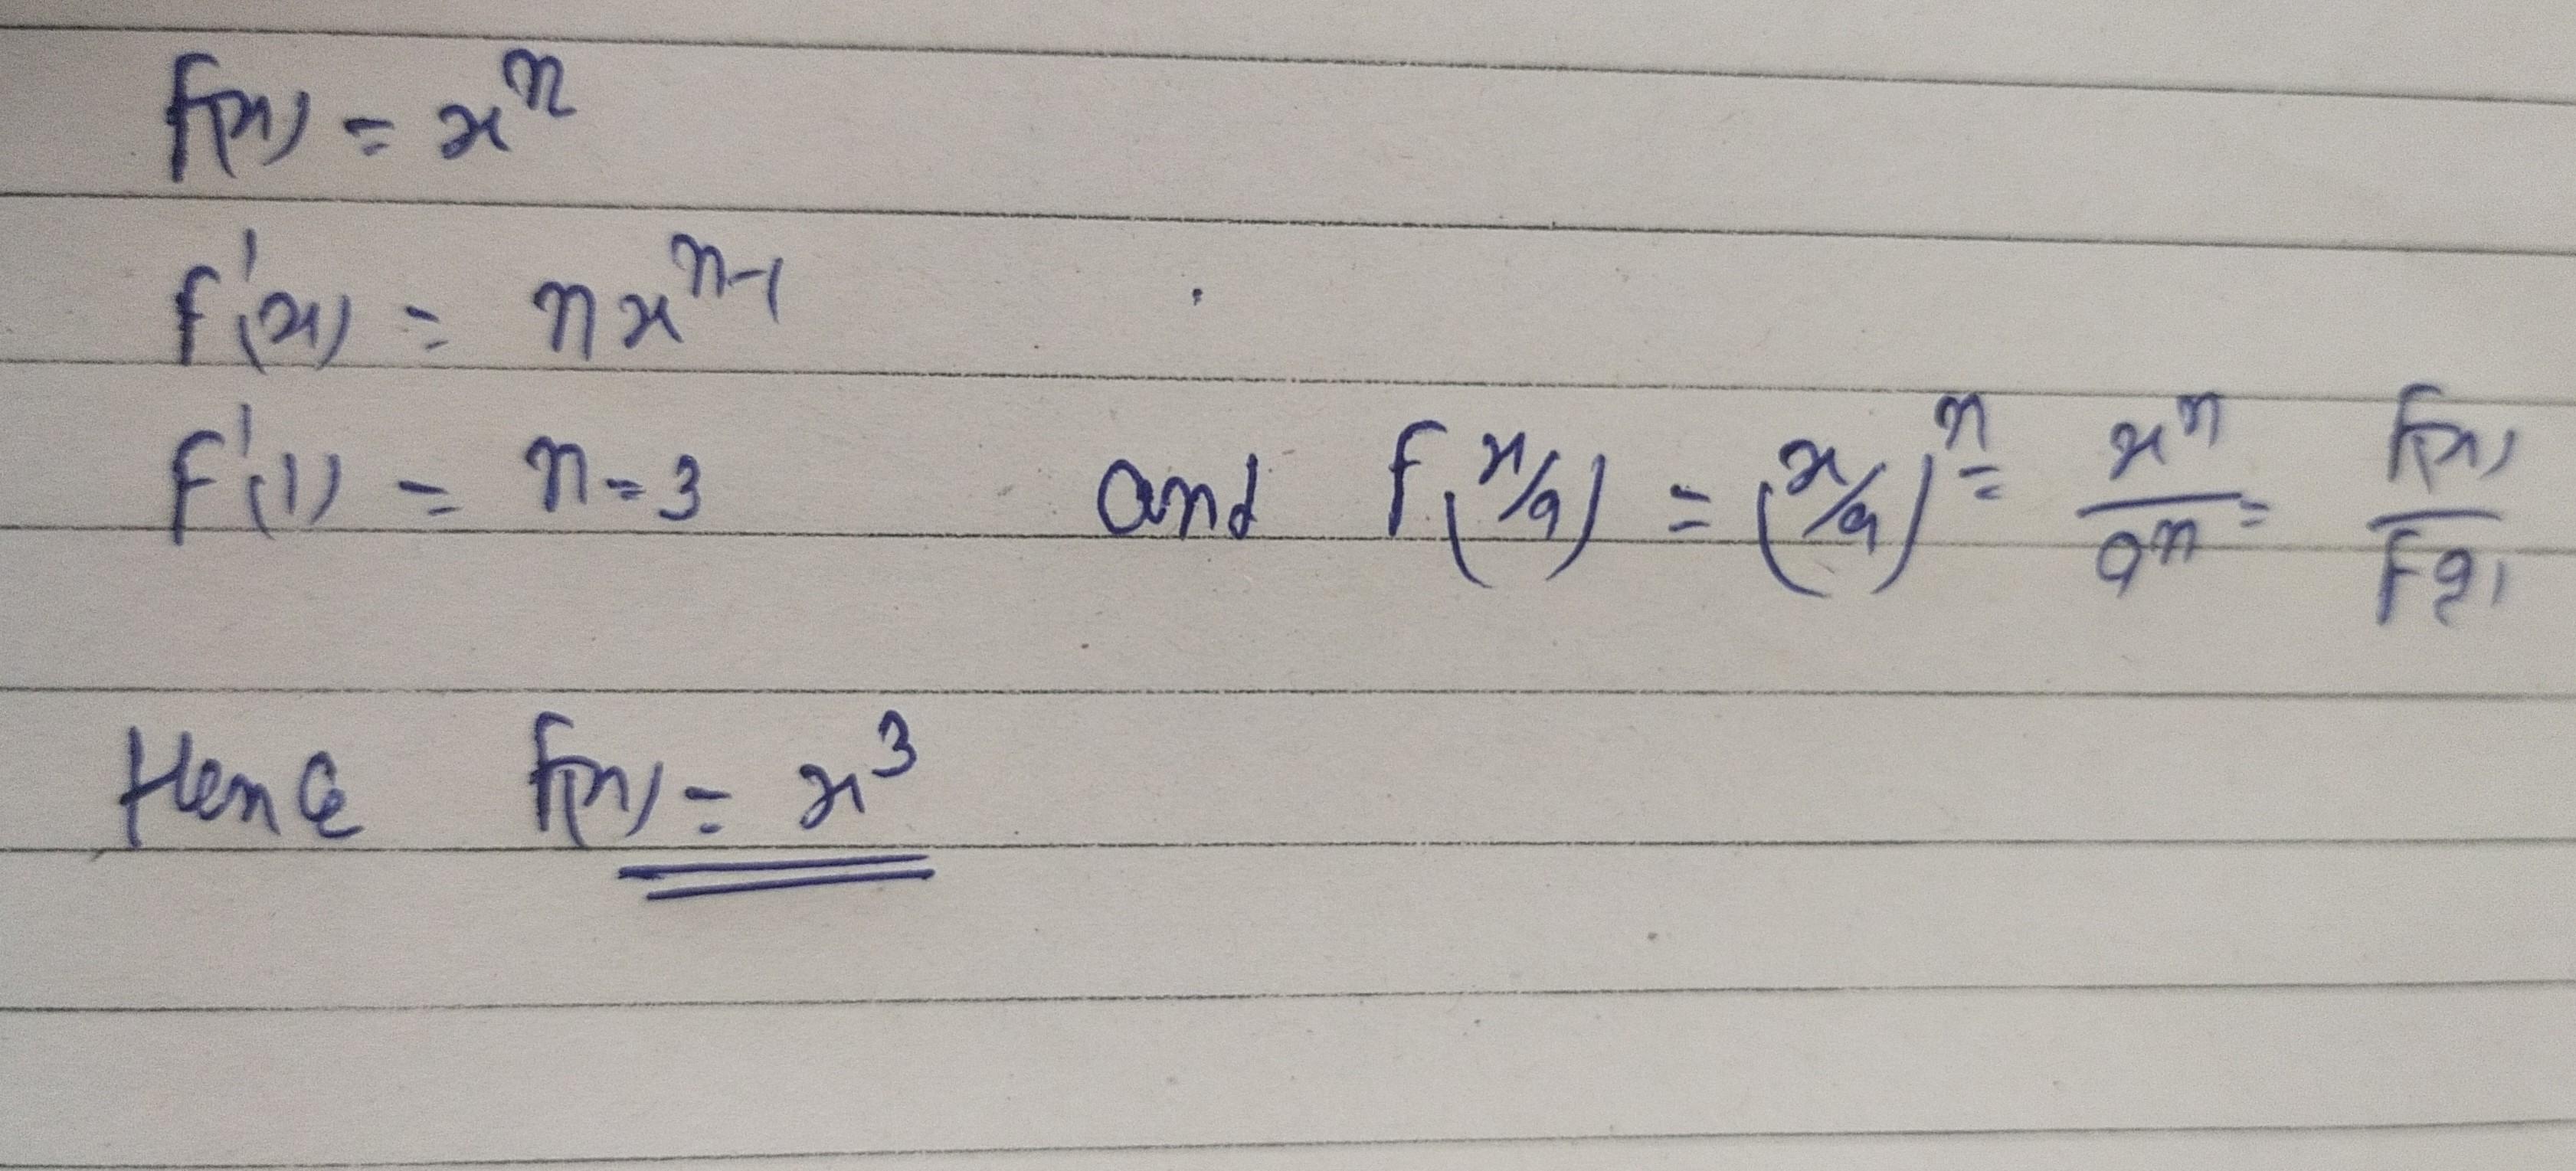 f(x) = x^n
f'(x) = nx^{n-1}
f'(1) = n = 3 and f(x/a) = (x/a)^n = x^n/a^n = f(x)/f(a)
Hence f(x) = x^3